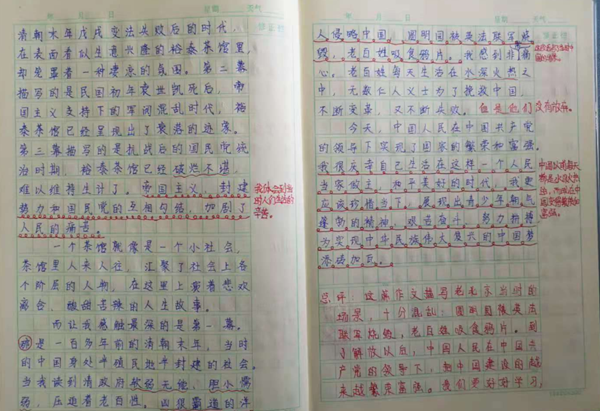 清朝末年戊戌变法失败后的时代，
在表面看似生意兴隆的裕泰茶馆里，
却笼罩着一种凄凉的氛围。第二幕
描写的是民国初年袁世凯死后，帝
国主义支持下的军阀混乱时代，裕
泰茶馆已经呈现出了衰落的迹象。
第三幕描写的是抗战后的国民党统
治时期，裕泰茶馆已经破烂不堪，
难以维持生计了。帝国主义，封建
势力和国民党的互相勾结，加剧了
人民的痛苦。
一个茶馆就像是一个小社会，
茶馆里人来人往，汇聚了社会上各
个阶层的人物，在这里上演着悲欢
离合，酸甜苦辣的人生故事。
而让我感触最深的是第一幕。
是一百多年前的清朝末年，当时
的中国身处半殖民地半封建的社会。
当我读到清政府软弱无能，胆小懦
弱，压迫着老百姓。凶狠霸道的洋
人侵略中国，圆明园被英法联军烧
毁，老百姓吸食鸦片。我感到非常痛
心。老百姓每天生活在水深火热之
中，无数仁人义士为了挽救中国，
不断变革，又不断失败，但是他们没有放弃。
今天，中国人民在中国共产党
的领导下实现了国家的繁荣和富强。
我很庆幸自己生活在这样一个人民
当家做主，和平美好的时代。我更
应该珍惜当下，展现出青少年朝气
蓬勃的精神，艰苦奋斗，努力拼搏
为实现中华民族伟大复兴的中国梦
添砖加瓦。
总评：这篇作文描写老北京当时的
场景，十分混乱：圆明园被英法
联军烧毁，老百姓吸食鸦片。到
了解放以后，中国人民在中国共
产党的领导下，把中国建设的越
来越繁荣富强。我们要好好学习，